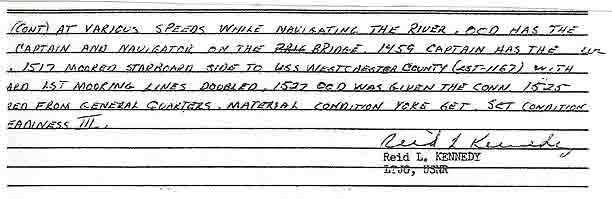 (CONT) AT VARIOUS SPEEDS WHILE NAVIGATING THE RIVER. OCD HAS THE
CAPTAIN AND NAVIGATOR ON THE BRIDGE. 1459 CAPTAIN HAS THE
. 1517 MOORED STARBOARD SIDE TO USS WESTCHESTER COUNTY (LST-1167) WITH
ARD LST MOORING LINES DOUBLED. 1527 OCD WAS GIVEN THE CONN. 1525
RED FROM GENERAL QUARTERS. MATERIAL CONDITION YOKE SET. SET CONDITION
EADINESS III.
Reid L Kennedy
Reid L. KENNEDY
LTJG, USNR